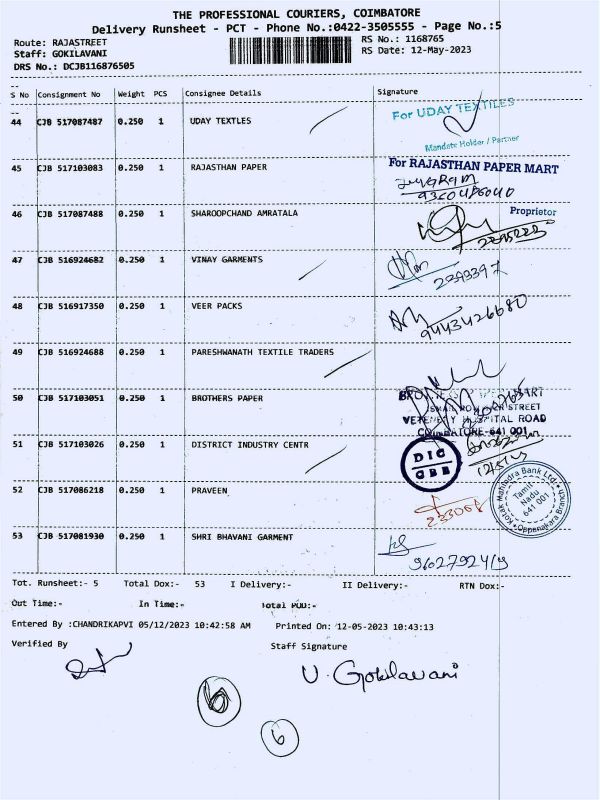 THE PROFESSIONAL COURIERS, COIMBATORE
Delivery Runsheet - PCT - Phone No.:0422-3505555 - Page No.:5
Route: RAJASTREET
RS No.: 1168765
Staff: GOKILAVANI
RS Date: 12-May-2023
DRS No.: DCJB116876505
S No Consignment No Weight PCS Consignee Details Signature
44 CJB 517087487 0.250 1 UDAY TEXTLES
For UDAY TEXTILES
Mandate Holder / Partner
45 CJB 517103083 0.250 1 RAJASTHAN PAPER
For RAJASTHAN PAPER MART
Proprietor
46 CJB 517087488 0.250 1 SHAROOPCHAND AMRATALA
47 CJB 516924682 0.250 1 VINAY GARMENTS
48 CJB 516917350 0.250 1 VEER PACKS
9443426680
49 CJB 516924688 0.250 1 PARESHWANATH TEXTILE TRADERS
50 CJB 517103051 0.250 1 BROTHERS PAPER
STREET
ROAD
COIMBATORE-641 001
51 CJB 517103026 0.250 1 DISTRICT INDUSTRY CENTR
DIC
CBE
52 CJB 517086218 0.250 1 PRAVEEN
Kotak Mahindra Bank Ltd.
Tamil
Nadu
641 001
Oppanakara Branch
53 CJB 517081930 0.250 1 SHRI BHAVANI GARMENT
Tot. Runsheet:- 5 Total Dox:- 53 I Delivery:- II Delivery:- RTN Dox:-
Out Time:- In Time:- Total POD:-
Entered By :CHANDRIKAPVI 05/12/2023 10:42:58 AM Printed On: 12-05-2023 10:43:13
Verified By Staff Signature
V. Gokilavani
6
6